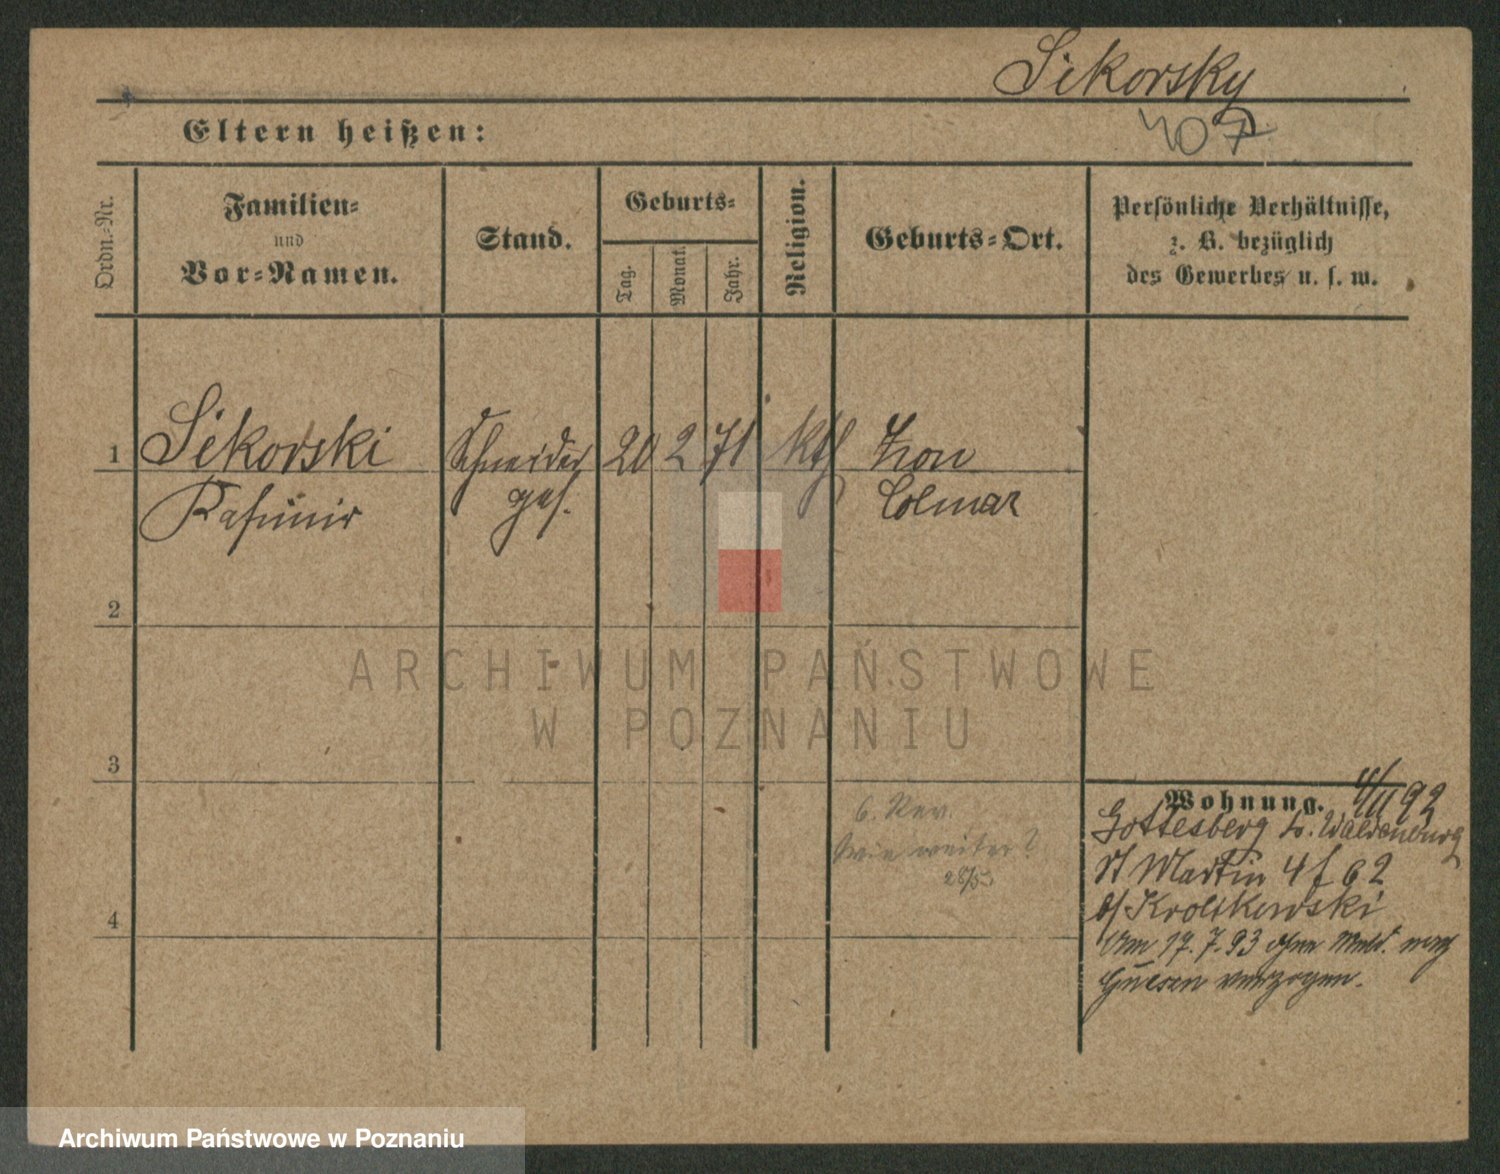 Sikorsky
407
Eltern heißen:
Ordn.-Nr.
Familien-
und
Vor-Namen.
Stand.
Geburts-
Tag.
Monat.
Jahr.
Religion.
Geburts-Ort.
Persönliche Verhältnisse,
z. B. bezüglich
des Gewerbes u. s. w.
1
Sikorski
Kasimir
Schneider
ges.
20
2
71
kth
Colmar
2
3
4
ARCHIWUM PAŃSTWOWE
W POZNANIU
6. Rev.
wie weiter?
28/5
Wohnung.
4/11 92
Gottesberg b. Waldenburg
St Martin 4 f 62
b/ Krolikowski
Am 17.7.93 ohne Meld. nach
Gnesen verzogen.
Archiwum Państwowe w Poznaniu